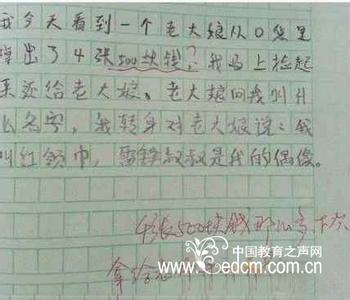 我今天看到一个老大娘从口袋里
掉出了4张500块钱?我马上捡起
来还给老大娘、老大娘问我叫什
么名字,我转身对老大娘说:我
叫红领巾,雷锋叔叔是我的偶像。
4张500块钱那么
拿给
中国教育之声网
edcm.com.cn